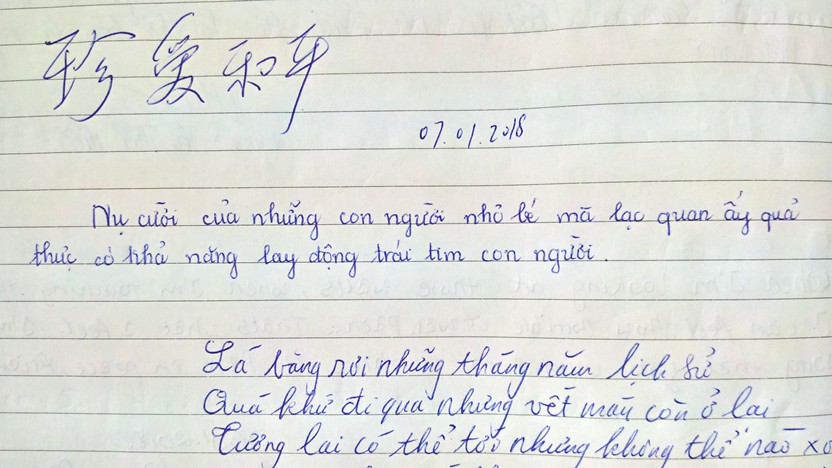 珍爱和平
07.01.2018
Nụ cười của những con người nhỏ bé mà lạc quan ấy quả
thực có khả năng lay động trái tim con người.
Lá bàng rơi những tháng năm lịch sử
Quá khứ đi qua nhưng vết máu còn ở lại
Tương lai có thể tới nhưng không thể nào